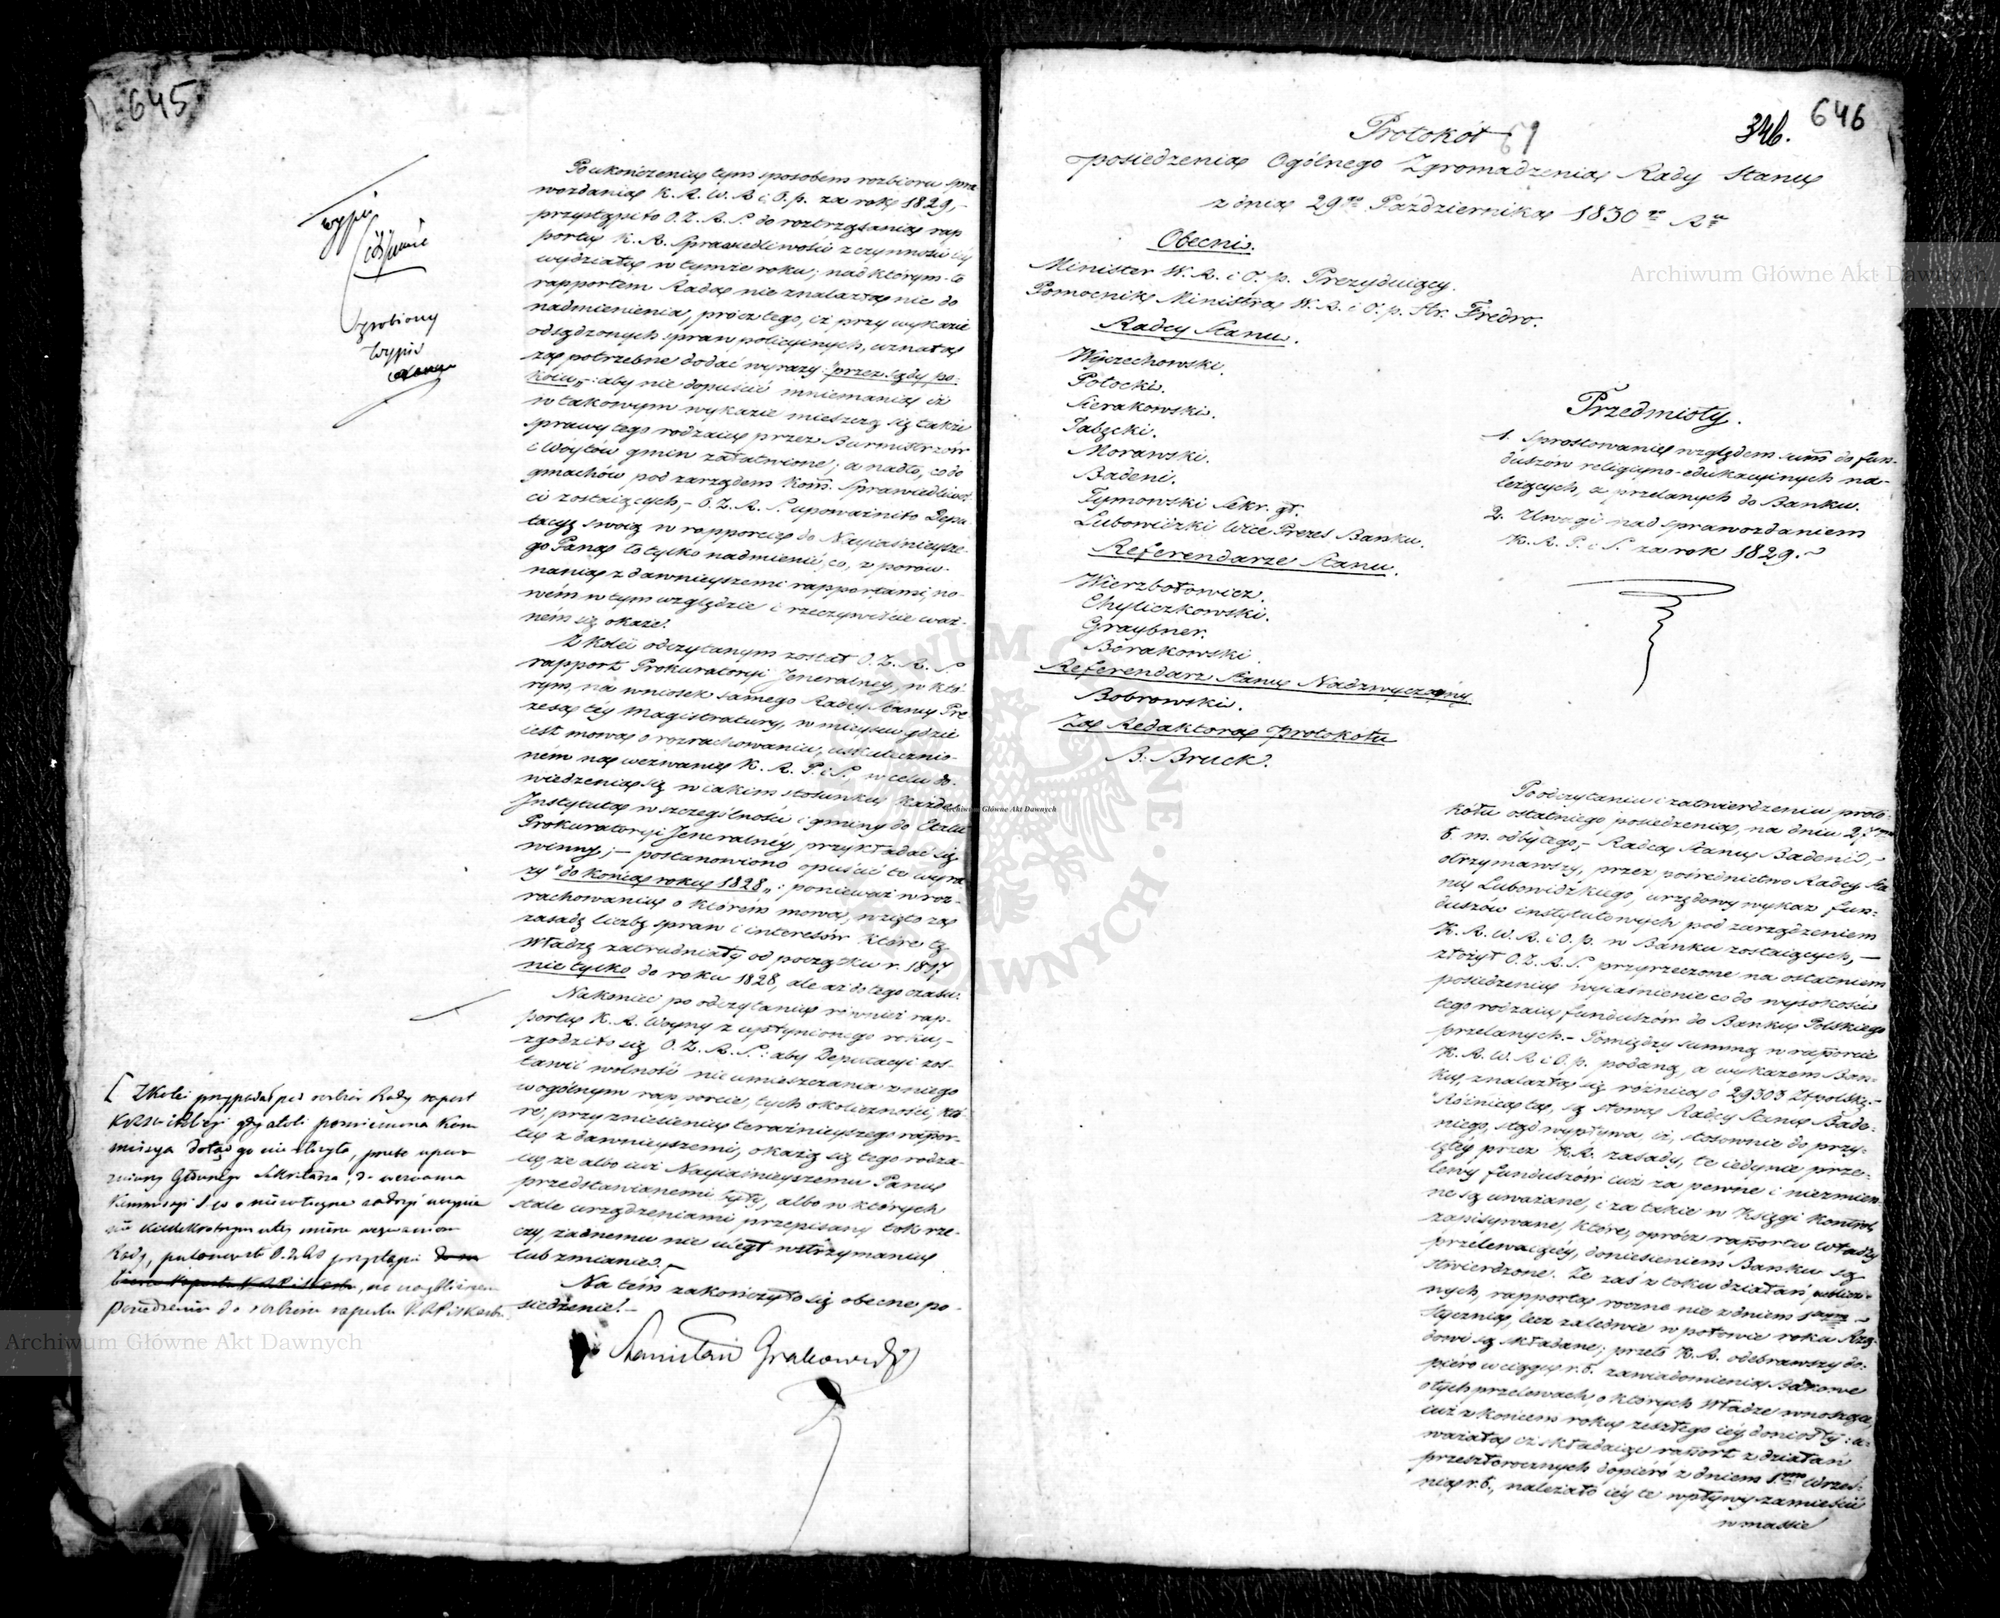 645
wypis
zrobiony
wypis
Po ukończeniu tym sposobem rozbioru spra
wozdania K. R. W. R. i O. p. za rok 1829,-
przystąpiło O. Z. R. S. do roztrząsania rap
portu K. R. Sprawiedliwości z czynności iéy
wydziału w tymże roku; nad którym-to
rapportem Rada nie znalazła nic do
nadmienienia, prócz tego, iż przy wykazie
odsądzonych spraw policyinych, uznała
za potrzebne dodać wyrazy: "przez sądy po-
koiu„: aby nie dopuścić mniemania iż
w takowym wykazie mieszczą się także
sprawy tego rodzaiu przez Burmistrzów
i Wóytów gmin załatwione; a nadto, co do
gmachów pod zarządem Komm. Sprawiedliwoś
ci zostaiących,- O. Z. R. S. upoważniło Depu
tacyą swoią w rapporcie do Nayiaśnieysze-
go Pana to tylko nadmienić, co, z porów-
nania z dawnieyszemi rapportami, no-
wém w tym względzie i rzeczywiście waż-
ném się okaże.
Z kolei odczytanym został O. Z. R. S.
rapport Prokuratoryi Jeneralney, w któ-
rym, na wniosek samego Radcy Stanu Pre
zesa téy Magistratury, w mieyscu gdzie
iest mowa o rozrachowaniu, uskutecznio-
ném na wezwanie K. R. P. i S., w celu do-
wiedzenia się w iakim stosunku każde
Instytuta w szczególności i gminy do Etatu
Prokuratoryi Jeneralnéy przykładać się
winny;- postanowiono opuścić te wyra
zy "do końca roku 1828„: ponieważ w roz-
rachowaniu o którém mowa, wzięto za
zasadę liczbę spraw i interesów które tę
Władzę zatrudniały od początku r. 1817
nie tylko do roku 1828, ale aż do tego czasu.
Nakoniec po odczytaniu również rap-
portu K. R. Woyny z upłynionego roku,-
zgodziło się O. Z. R. S.: aby Deputacyi zos-
tawić wolność nie umieszczania z niego
w ogólnym rapporcie, tych okoliczności, któ
re, przy zniesieniu teraźnieyszego rappor-
tu z dawnieyszemi, okażą się tego rodza-
iu, że albo iuż Nayiaśnieyszemu Panu
przedstawianemi były, albo w których
stale urządzeniami przepisany tok rze-
czy, żadnemu nie uległ wstrzymaniu
lub zmianie.-
Na tém zakończyło się obecne po-
siedzenie.-
Stanisław Grabowski
Z kolei przypadał pod rozbiór Rady raport
gdy atoli pomieniona Kom
missya dotąd go nie złożyła, przeto
Głównego Sekretarza, do wezwania
Kommissyi
Rady, postanowiło O. Z. R. S. przystąpić
na naybliższem
posiedzeniu do rozbioru raportu
646
346.
Protokół 61
posiedzenia Ogólnego Zgromadzenia Rady Stanu
z dnia 29go Października 1830go Ru
Obecni.
Minister W. R. i O. p. Prezyduiący.
Pomocnik Ministra W. R. i O. p. Hr. Fredro.
Radcy Stanu.
Wyczechowski.
Potocki.
Sierakowski.
Tabęcki.
Morawski.
Badeni.
Tymowski Sekr. gł.
Lubowidzki Wice Prezes Banku.
Referendarze Stanu.
Wierzbołowicz.
Chyliczkowski.
Graybner.
Borakowski
Referendarz Stanu Nadzwyczayny
Bobrowski.
Za Redaktora Protokołu
B. Bruck.
Przedmioty.
1. Sprostowanie względem summ do fun-
duszów religiyno-edukacyinych na-
leżących, a przelanych do Banku.
2. Uwagi nad sprawozdaniem
K. R. P. i S. za rok 1829.-
Po odczytaniu i zatwierdzeniu proto-
kółu ostatniego posiedzenia, na dniu 27mym
b. m. odbytego,- Radca Stanu Badeni,-
otrzymawszy, przez pośrednictwo Radcy Sta
nu Lubowidzkiego, urzędowy wykaz fun-
duszów instytutowych pod zarządzeniem
K. R. W. R. i O. p. w Banku zostaiących,-
złożył O. Z. R. S. przyrzeczone na ostatniem
posiedzeniu wyiaśnienie co do wysokości
tego rodzaiu funduszów do Banku Polskiego
przelanych.- Pomiędzy summą w rapporcie
K. R. W. R. i O. p. podaną, a wykazem Ban-
ku, znalazła się różnica o 29303 Złt polskę.-
"Różnica ta, są słowa Radcy Stanu Bade-
niego, stąd wypływa, iż, stosownie do przy-
iętéy przez K. R. zasady, te iedynie prze-
lewy funduszów iuż za pewne i niezmien-
ne są uważane, i za takie w księgi kontroli
zapisywane, które, oprócz rapportu Władzy
przelewaiącéy, doniesieniem Banku są
stwierdzone. Że zaś z toku działań publicz-
nych, rapporta roczne nie z dniem 1szym
Stycznia, lecz zaledwie w połowie roku Rzą-
dowi są składane; przeto K. R. odebrawszy do-
piéro w ciągu r. b. zawiadomienia Bankowe
o tych przelewach, o których Władze wnoszące
iuż z końcem roku zeszłego iéy doniosły: u-
ważała iż składaiąc rapport z działań
przeszłorocznych dopiéro z dniem 1ym Wrześ-
nia r. b., należało iéy te wpływy zamieścić
w massie
Archiwum Główne Akt Dawnych
Archiwum Główne Akt Dawnych
Archiwum Główne Akt Dawnych